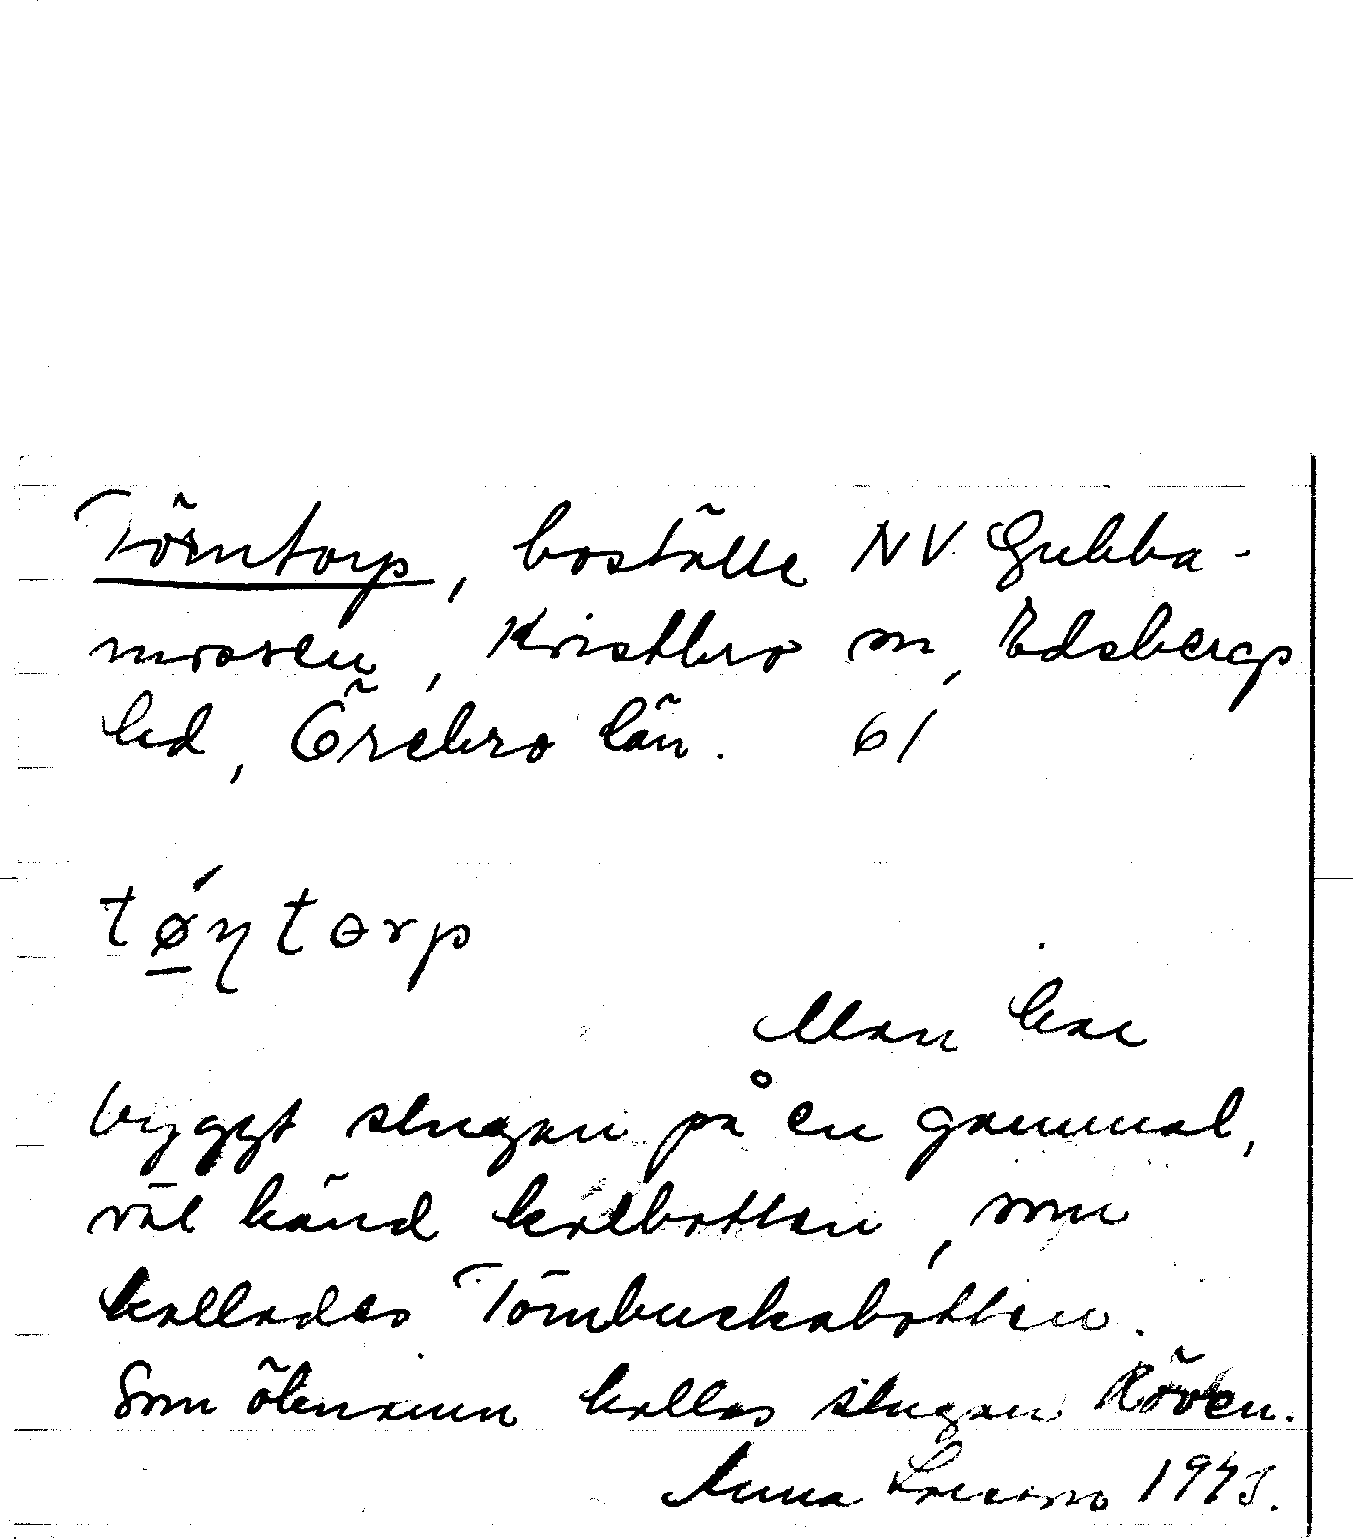 Törntorp, boställe NV Gubba-
mossen, Kvistbro sn, Edsbergs
hd, Örebro län. 61
tǿɳtorp
Man har
byggt stugan på en gammal,
väl känd kolbotten, som
kallades Törnbuskabotten.
Som öknamn kallas stugan Röven.
Anna Larsson